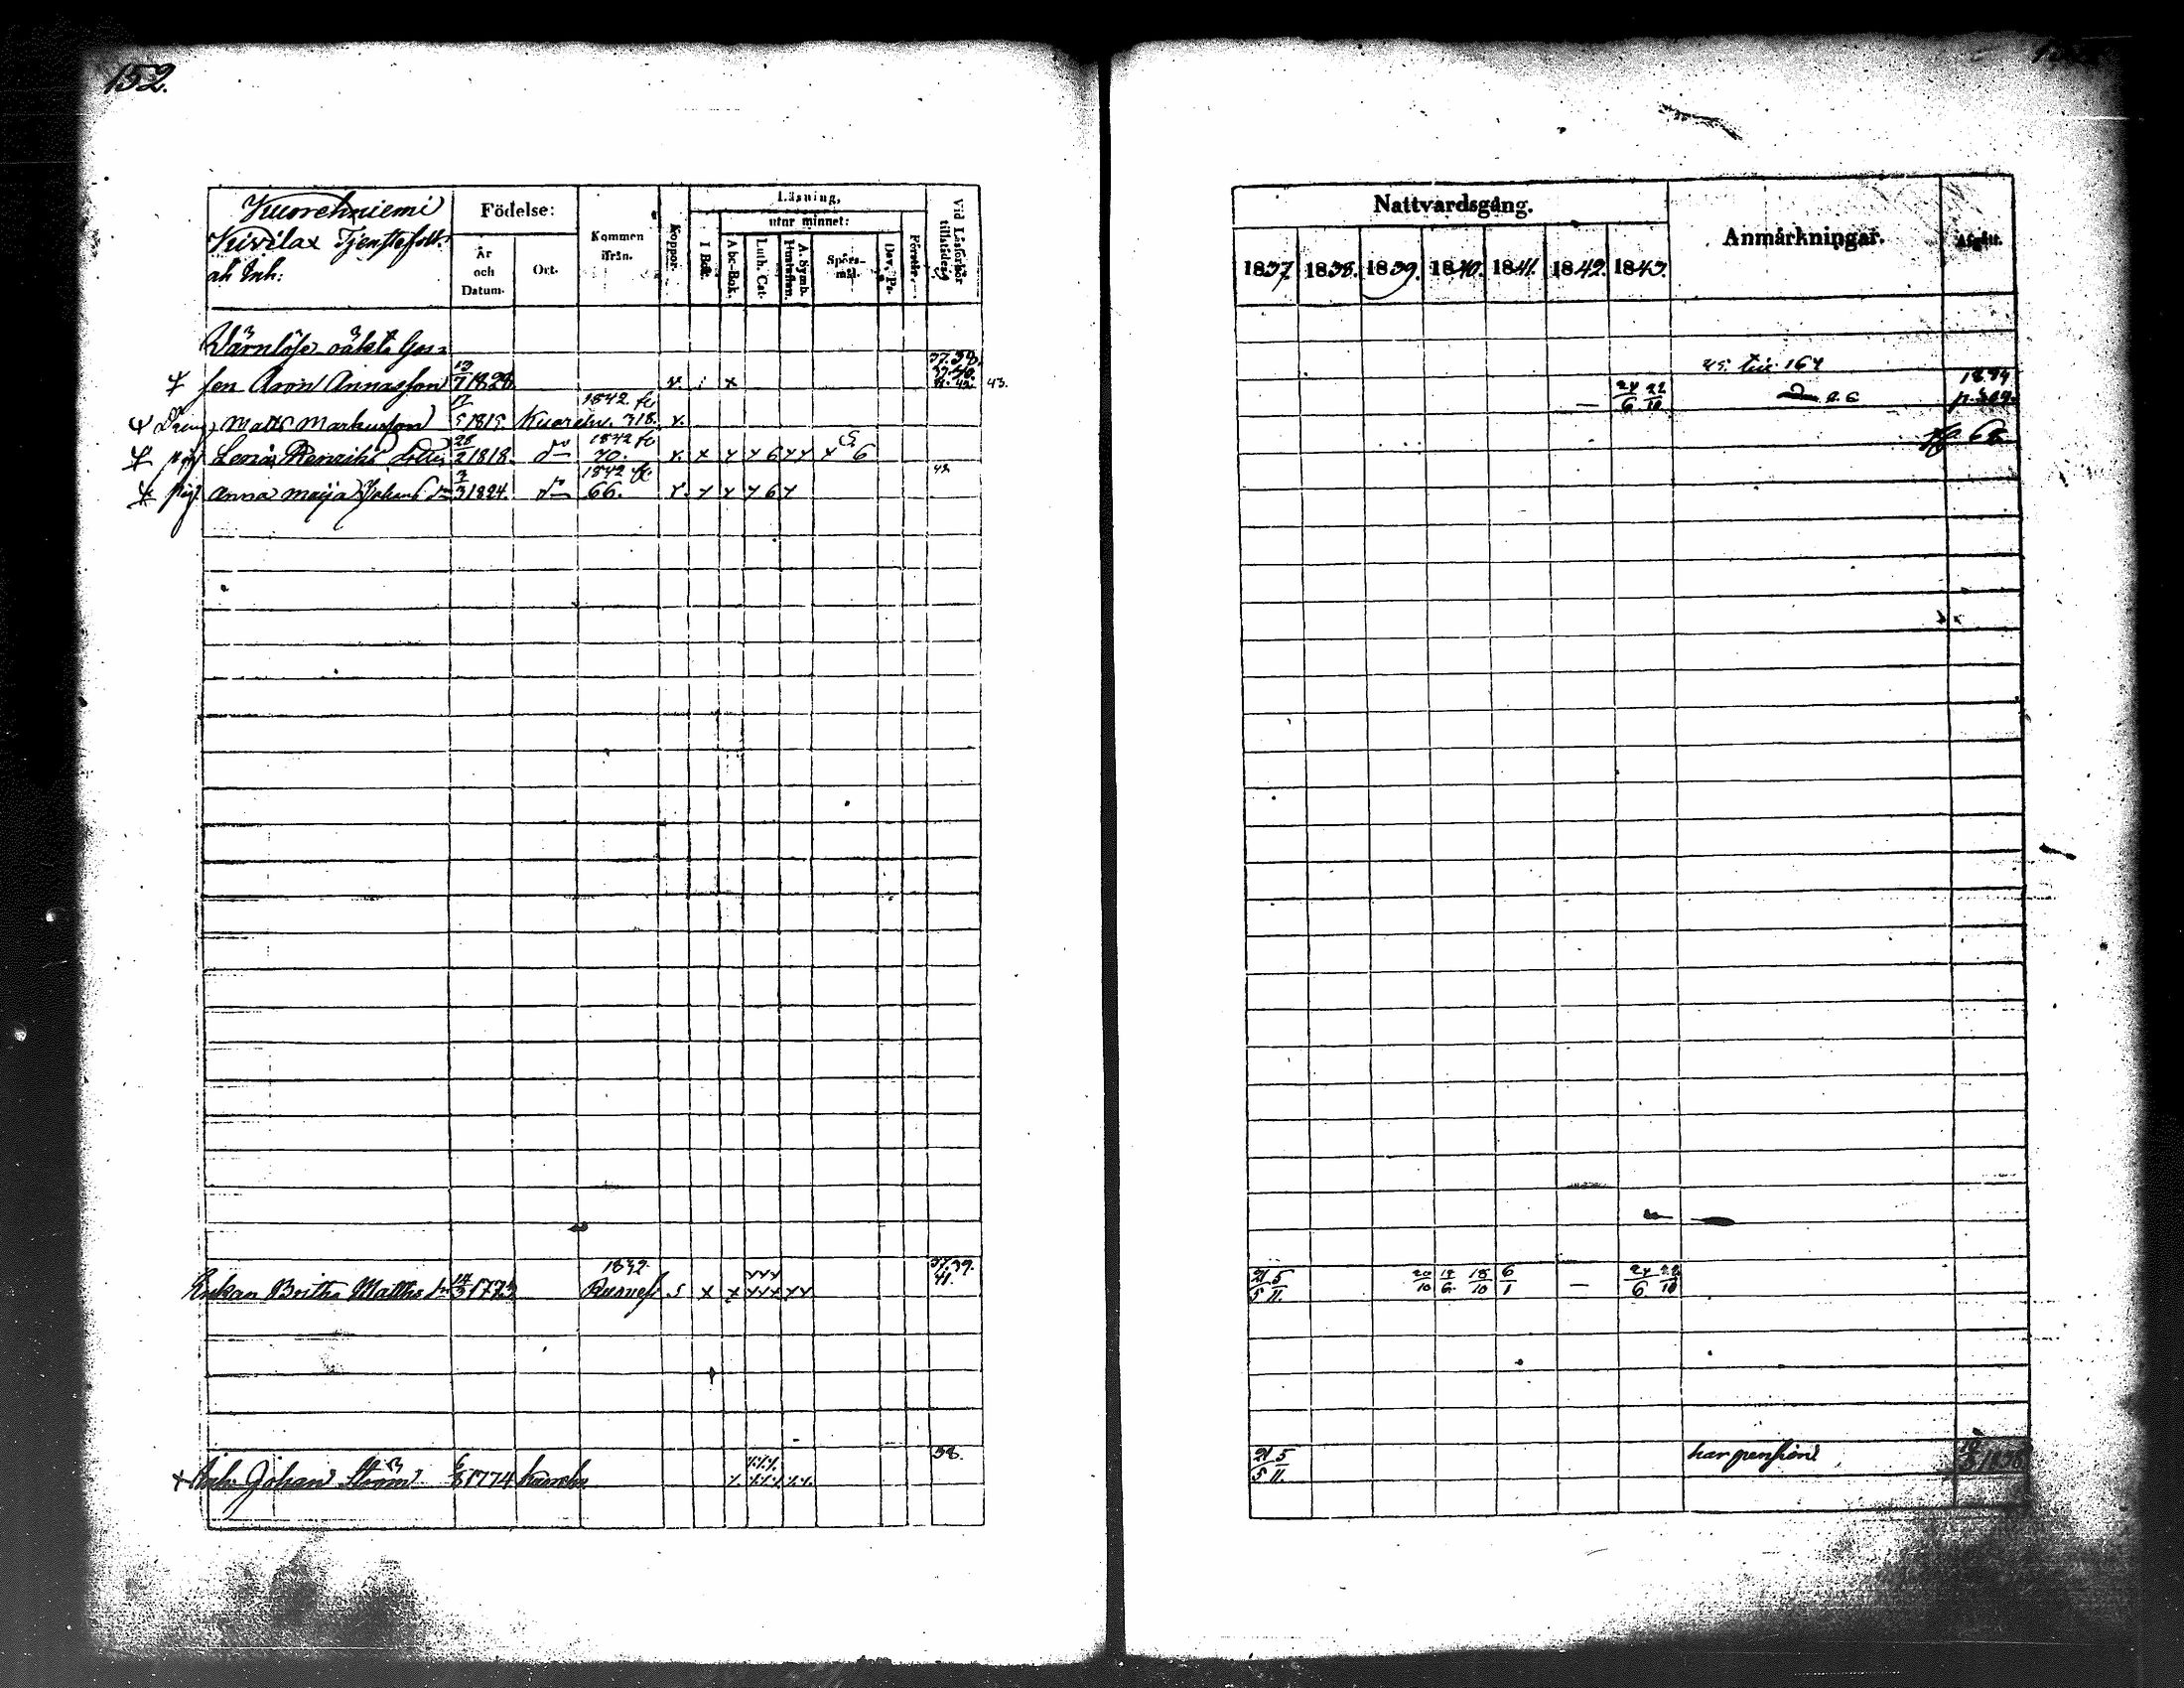 152.
Kuorehniemi
Kivilax Tjenstefolk.
ah Inh:
Födelse:
År
och
Datum.
Ort.
Kommen
ifrån.
Koppor.
Läsning,
I Bok.
utur minnet:
Abc-Bok.
Luth. Cat.
A. Symb.
Hustaflan.
Spörs-
mål.
Dav. Ps.
Förstår.
Vid Läsförhör
tillstädes
Värnlöse oäkta Gos=
sen Aron Annasson 13/7 1828. x. x 37.38. 39.40. 41. 42. 43.
Dreng Matts Markusson 17/5 1815. Kuoreh. 1842 fr. 318. x.
pig Lena Henriks dotter 28/2 1818. do 1842 fr. 70. x. x x x 6 x x x 6
pig Anna Maija Johans dr 3/3 1824. do 1842 fr. 66. x. x x x 6 x 42.
Enkan Britha Matths dr 14/3 1773 1832 Rusnefs s x x xxx xxx xx 37.39. 41.
x Inh. Johan Ström 6/6 1774 kuoreh. 38.
Nattvardsgång.
1837. 1838. 1839. 1840. 1841. 1842. 1843.
Anmärkningar.
Afgått.
45. till 164
— 24/6 22/10 1844
p. 68.
21/5 5/11. 20/10 12/6 18/10 6/1 — 24/6 22/10
21/5 5/11. har pension 1838